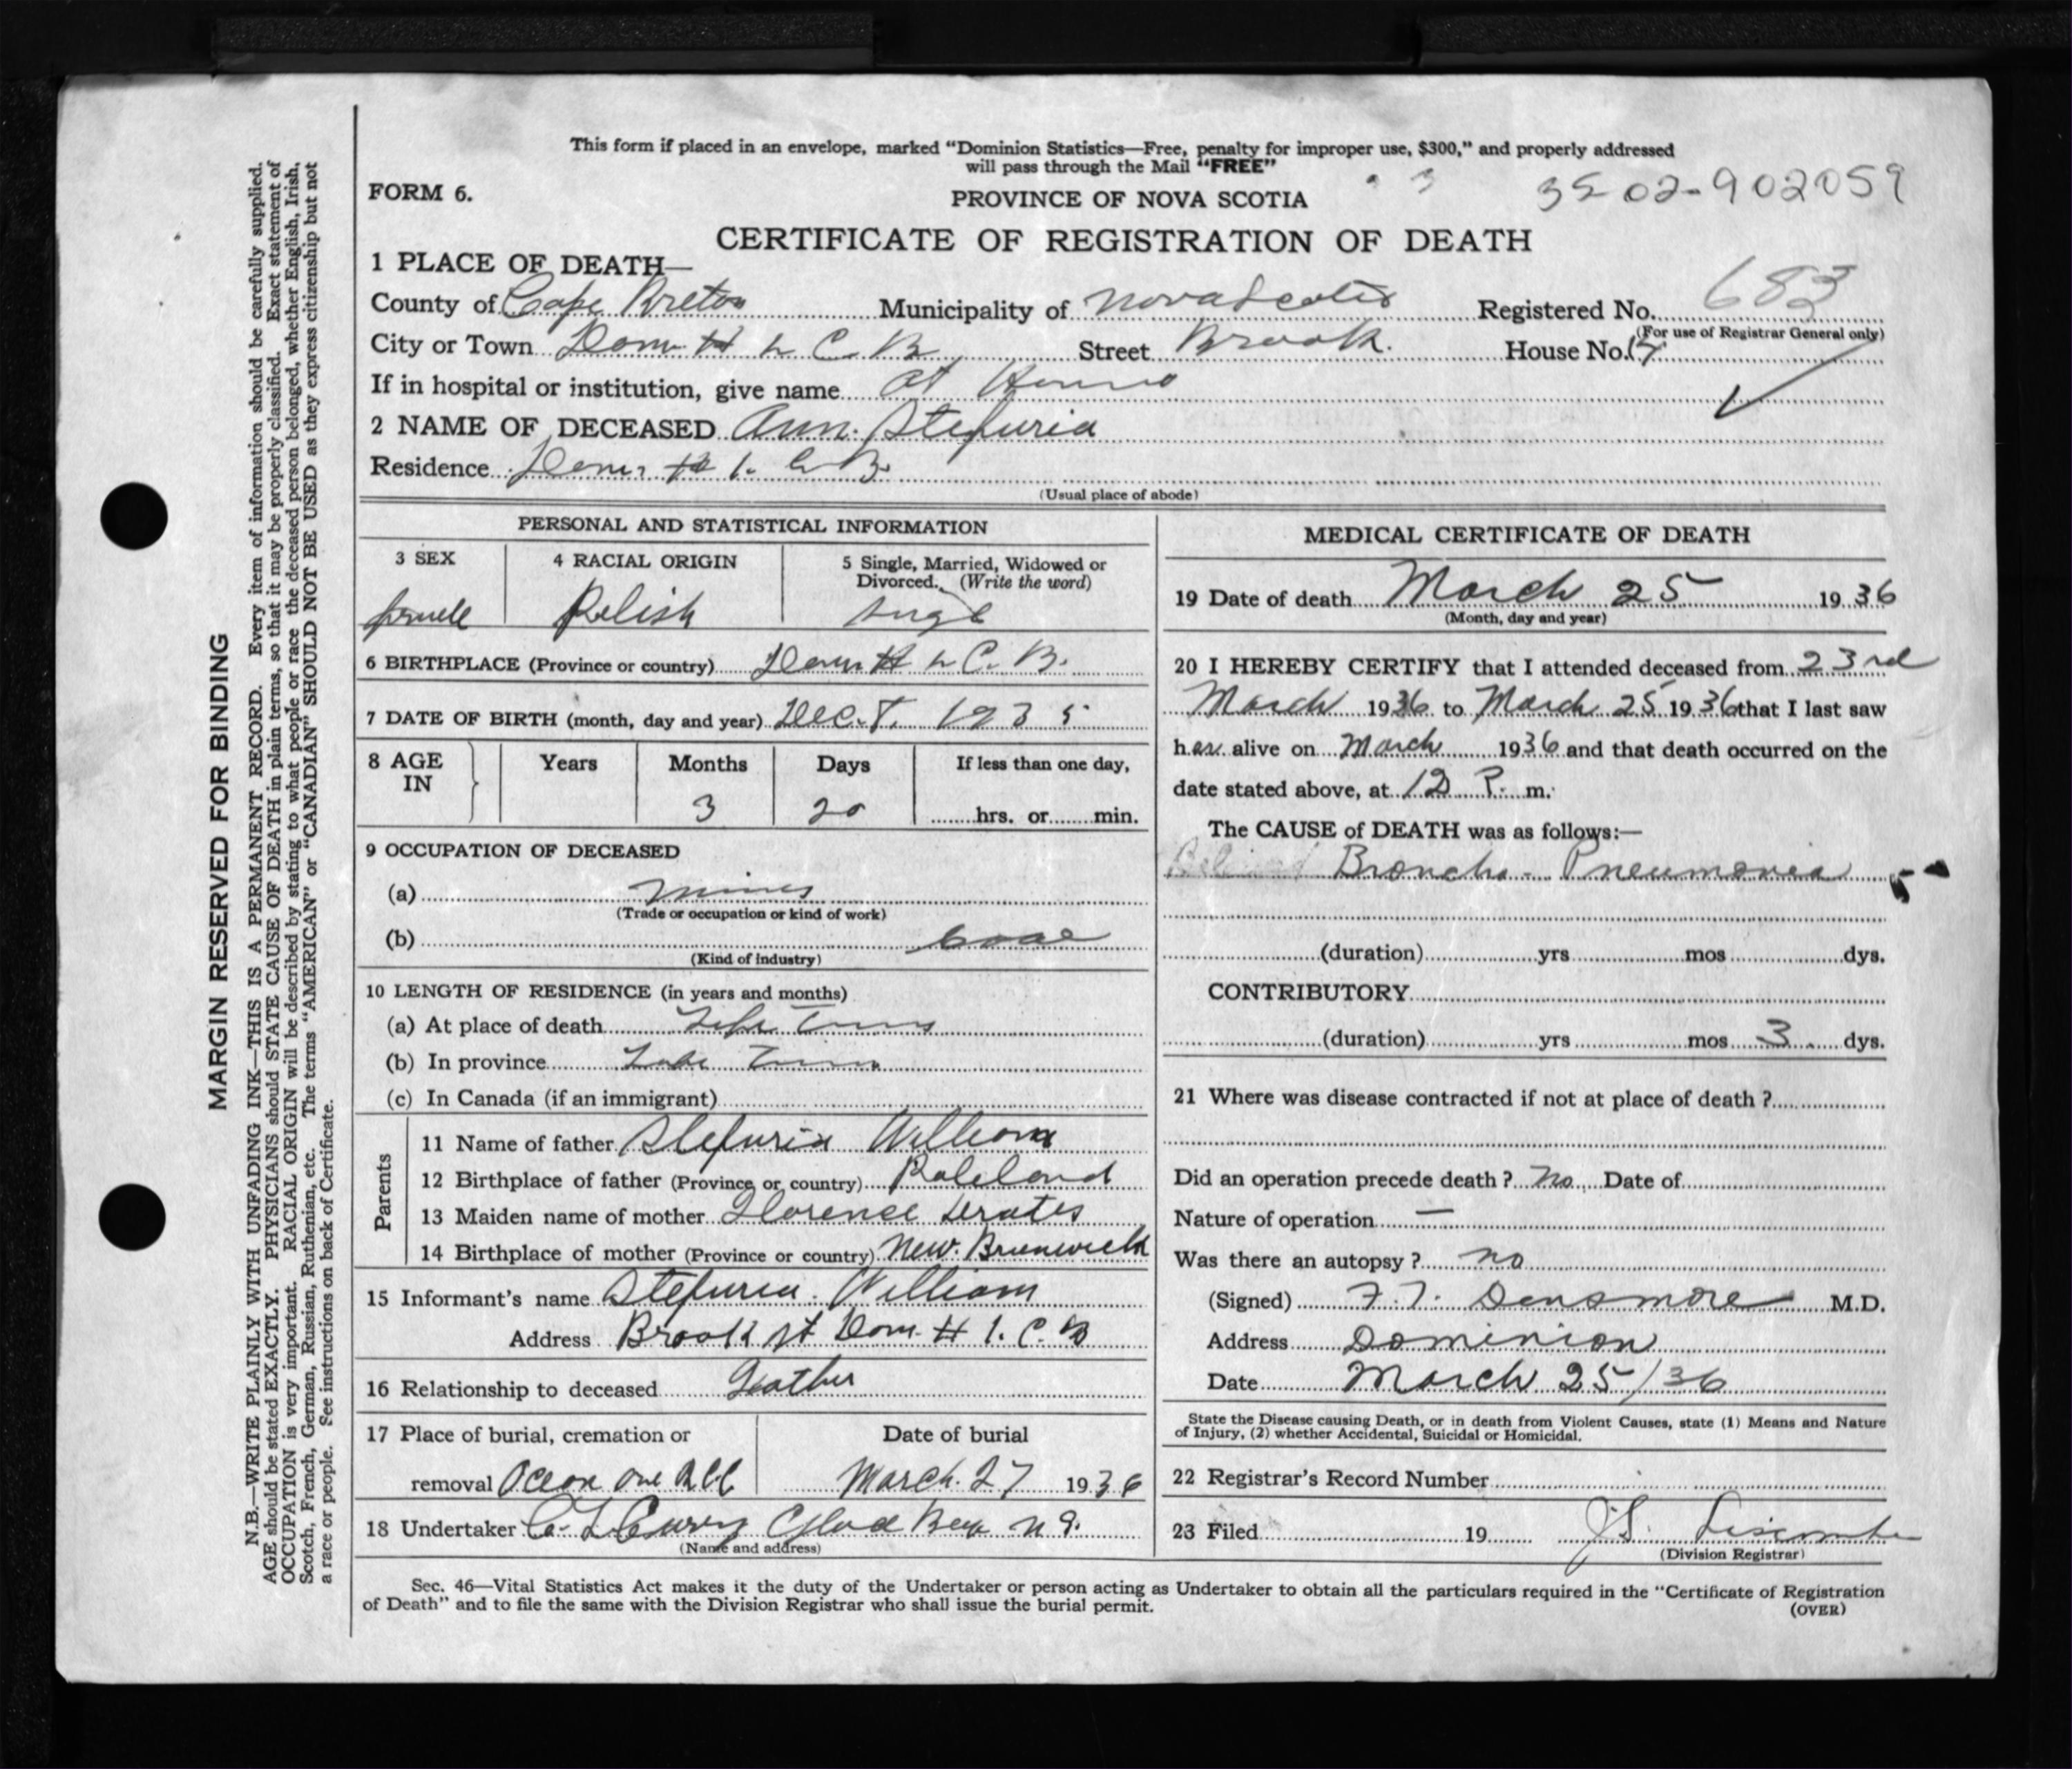 This form if placed in an envelope, marked "Dominion Statistics—Free, penalty for improper use, $300," and properly addressed
will pass through the Mail "FREE"
FORM 6.
PROVINCE OF NOVA SCOTIA
3502-902059
CERTIFICATE OF REGISTRATION OF DEATH
1 PLACE OF DEATH—
County of Cape Breton Municipality of Nova Scotia Registered No. 683
(For use of Registrar General only)
City or Town Dom # 1 C. B. Street Brook. House No.
If in hospital or institution, give name at Home
2 NAME OF DECEASED Ann. Stefuria
Residence Dom. # 1. C. B.
(Usual place of abode)
PERSONAL AND STATISTICAL INFORMATION
3 SEX 4 RACIAL ORIGIN 5 Single, Married, Widowed or
Divorced. (Write the word)
female Polish single
6 BIRTHPLACE (Province or country) Dom # 1 C. B.
7 DATE OF BIRTH (month, day and year) Dec. 1935
8 AGE IN Years Months Days If less than one day,
3 20 hrs. or min.
9 OCCUPATION OF DECEASED
(a)
(Trade or occupation or kind of work)
(b) Coal
(Kind of industry)
10 LENGTH OF RESIDENCE (in years and months)
(a) At place of death Life Time
(b) In province Life Time
(c) In Canada (if an immigrant)
Parents
11 Name of father Stefuria William
12 Birthplace of father (Province or country) Poleland
13 Maiden name of mother Florence
14 Birthplace of mother (Province or country) New. Brunwick
15 Informant's name Stefuria. William
Address Brook st Dom. # 1. C. B
16 Relationship to deceased Father
17 Place of burial, cremation or Date of burial
removal Ocean one March. 27 1936
18 Undertaker Curry Glace Bay N S.
(Name and address)
MEDICAL CERTIFICATE OF DEATH
19 Date of death March 25 1936
(Month, day and year)
20 I HEREBY CERTIFY that I attended deceased from 23rd
March 1936 to March 25 1936 that I last saw
her alive on March 1936 and that death occurred on the
date stated above, at 12 P. m.
The CAUSE of DEATH was as follows:—
Broncho-Pneumonia
(duration) yrs mos dys.
CONTRIBUTORY
(duration) yrs mos 3 dys.
21 Where was disease contracted if not at place of death ?
Did an operation precede death ? No Date of
Nature of operation —
Was there an autopsy ? no
(Signed) F. T. Densmore M.D.
Address Dominion
Date March 25/36
State the Disease causing Death, or in death from Violent Causes, state (1) Means and Nature
of Injury, (2) whether Accidental, Suicidal or Homicidal.
22 Registrar's Record Number
23 Filed 19 J.S.
(Division Registrar)
Sec. 46—Vital Statistics Act makes it the duty of the Undertaker or person acting as Undertaker to obtain all the particulars required in the "Certificate of Registration
of Death" and to file the same with the Division Registrar who shall issue the burial permit.
(OVER)
MARGIN RESERVED FOR BINDING
N.B.—WRITE PLAINLY WITH UNFADING INK—THIS IS A PERMANENT RECORD. Every item of information should be carefully supplied.
AGE should be stated EXACTLY. PHYSICIANS should STATE CAUSE OF DEATH in plain terms, so that it may be properly classified. Exact statement of
OCCUPATION is very important. RACIAL ORIGIN will be described by stating to what people or race the deceased person belonged, whether English, Irish,
Scotch, French, German, Russian, Ruthenian, etc. The terms "AMERICAN" or "CANADIAN" SHOULD NOT BE USED as they express citizenship but not
a race or people. See instructions on back of Certificate.